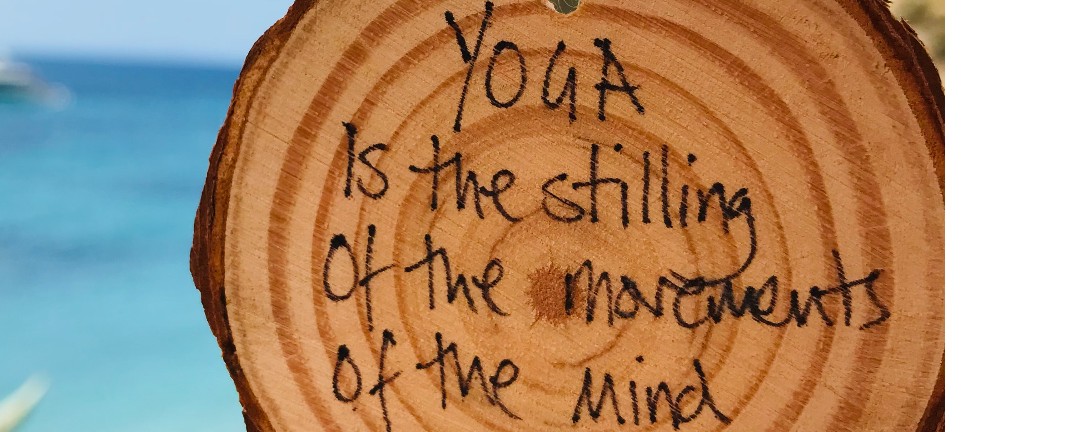 YOGA
Is the stilling
Of the movements
Of the Mind